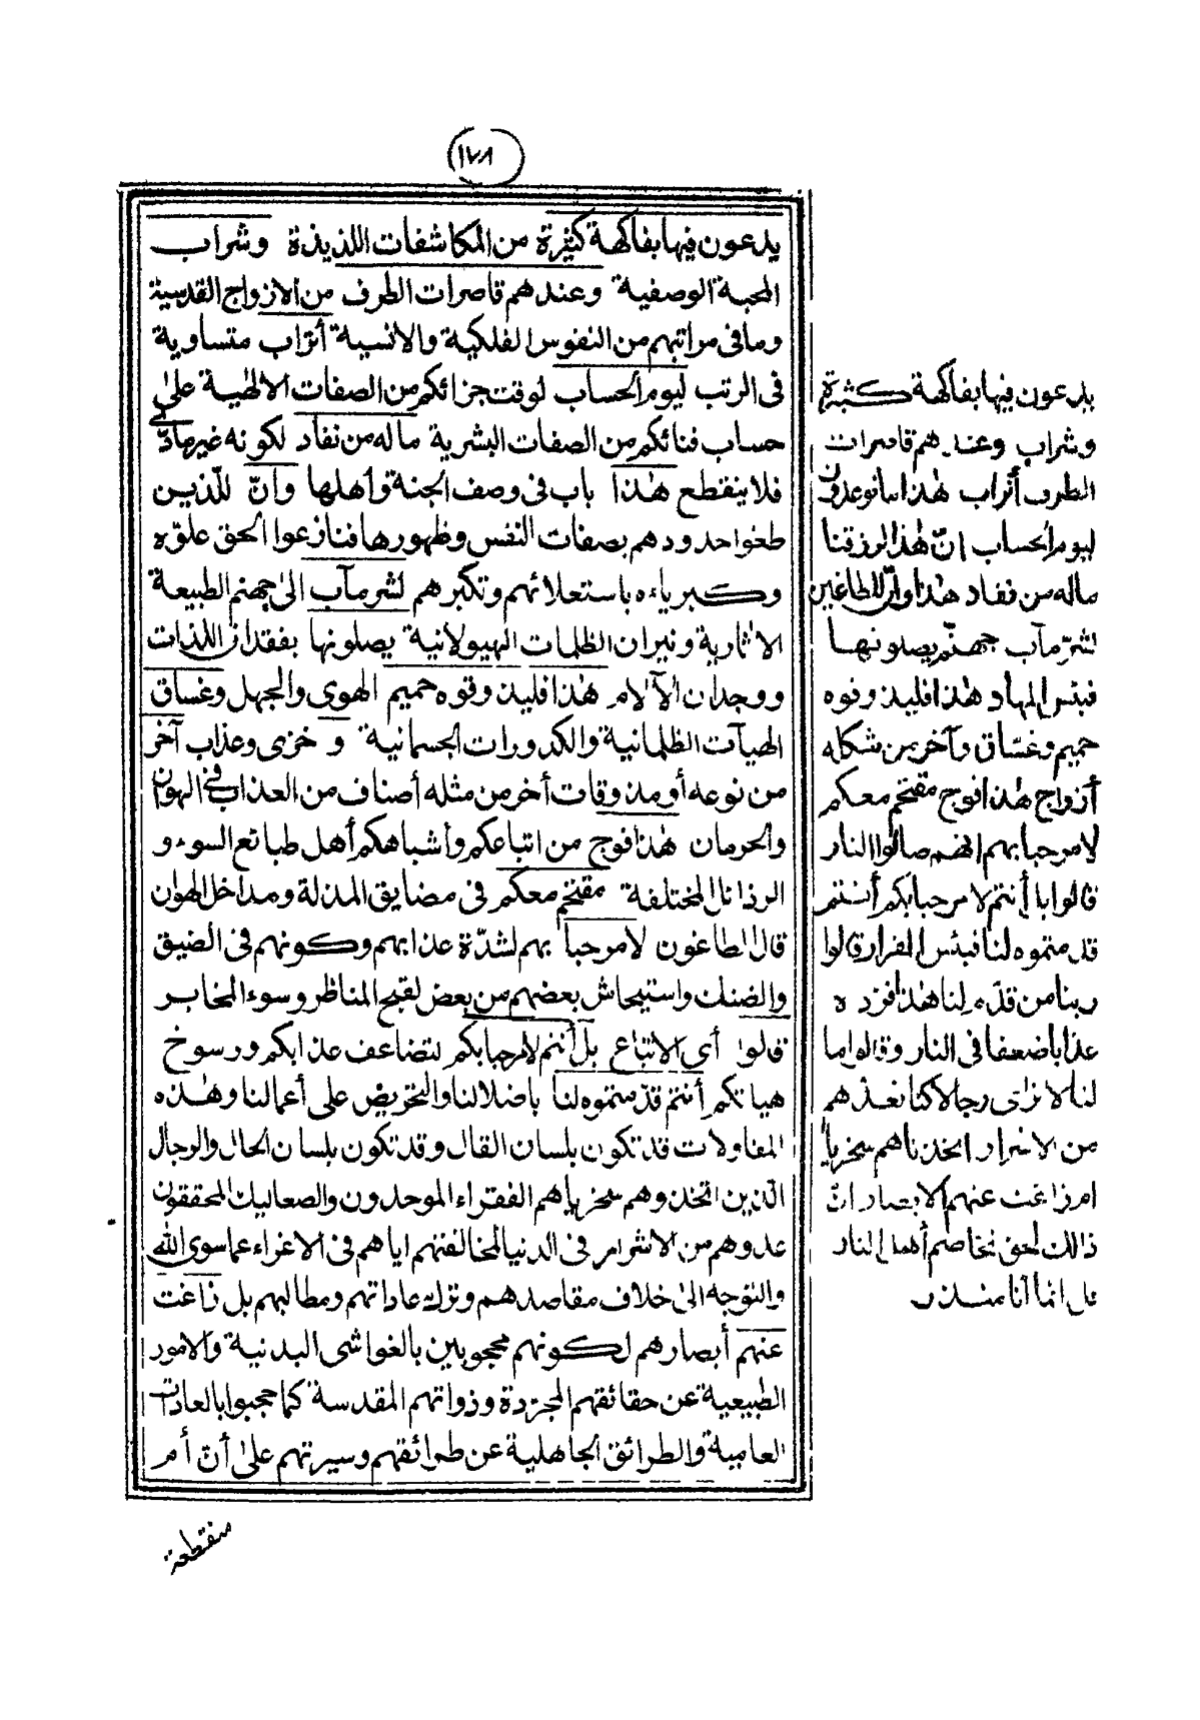 (١٧٨)
يدعون فيها بفاكهة كثيرة من المكاشفات اللذيذة وشراب
المحبة الوصفية وعندهم قاصرات الطرف من الازواج القدسية
وما فى مراتبهم من النفوس الفلكية والانسية أتراب متساوية
فى الرتب ليوم الحساب لوقت جزائكم من الصفات الالهية على
حساب فنائكم من الصفات البشرية ماله من نفاد لكونه غير مادّى
فلا ينقطع هذا باب فى وصف الجنة وأهلها وانّ للذين
طغوا حدودهم بصفات النفس وظهورها فنازعوا الحق علوّه
وكبرياءه باستعلائهم وتكبرهم لشر مآب الى جهنم الطبيعة
الاثارية ونيران الظلمات الهيولانية يصلونها بفقدان اللذات
ووجدان الآلام هذا فليذوقوه حميم الهوى والجهل وغساق
الهيآت الظلمانية والكدورات الجسمانية و خزى وعذاب آخر
من نوعه أو مذوقات أخر من مثله أصناف من العذاب فى الهوان
والحرمان هذا فوج من اتباعكم وأشباهكم أهل طبائع السوء و
الرذائل المختلفة مقتحم معكم فى مضايق المذلة ومداخل الهوان
قال الطاغون لا مرحبا بهم لشدّة عذابهم وكونهم فى الضيق
والضنك واستيحاش بعضهم من بعض لقبح المناظر وسوء المخابر
قالوا أى الاتباع بل أنتم لا مرحبا بكم لتضاعف عذابكم ورسوخ
هياتكم أنتم قدّمتموه لنا باضلالنا والتحريض على أعمالنا وهذه
المقاولات قد تكون بلسان القال وقد تكون بلسان الحال والرجال
الّذين اتخذوهم سخريا هم الفقراء الموحدون والصعاليك المحققون
عدوهم من الاشرار فى الدنيا لمخالفتهم اياهم فى الاغراء عما سوى الله
والتوجه الى خلاف مقاصدهم وترك عاداتهم ومطالبهم بل زاغت
عنهم أبصارهم لكونهم محجوبين بالغواشى البدنية والامور
الطبيعية عن حقائقهم المجرّدة وذواتهم المقدسة كما حجبوا بالعادات
العامية والطرائق الجاهلية عن طرائقهم وسيرتهم على أنّ أم
منقطعة
يدعون فيها بفاكهة كثيرة
وشراب وعندهم قاصرات
الطرف أتراب هذا ما توعدون
ليوم الحساب انّ هذا لرزقنا
ماله من نفاد هذا وانّ للطاغين
لشرّ مآب جهنّم يصلونها
فبئس المهاد هذا فليذوقوه
حميم وغسّاق وآخر من شكله
أزواج هذا فوج مقتحم معكم
لا مرحبا بهم انهم صالوا النار
قالوا بل أنتم لا مرحبا بكم أنتم
قدّمتموه لنا فبئس القرار قالوا
ربنا من قدّم لنا هذا فزده
عذابا ضعفا فى النار وقالوا ما
لنا لا نرى رجالا كنا نعدّهم
من الاشرار اتخذناهم سخريا
ام زاغت عنهم الابصار انّ
ذلك لحق تخاصم أهل النار
قل انما أنا منذر